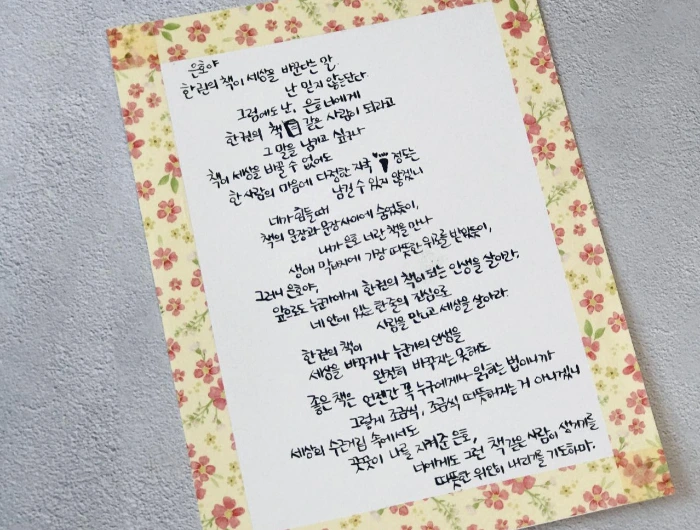 은호야
한 권의 책이 세상을 바꾼다는 말
난 믿지 않는단다.
그럼에도 난, 은호 너에게
한 권의 책 같은 사람이 되라고
그 말을 남기고 싶구나
책이 세상을 바꿀 수 없어도
한 사람의 마음에 다정한 자국 정도는
남길 수 있지 않겠니
네가 힘들 때
책의 문장과 문장 사이에 숨었듯이,
내가 은호 너란 책을 만나
생애 막바지에 가장 따뜻한 위로를 받았듯이,
그러니 은호야,
앞으로도 누군가에게 한 권의 책이 되는 인생을 살아라,
네 안에 있는 한 줄의 진심으로
사람을 만나고 세상을 살아라.
한 권의 책이
세상을 바꾸거나 누군가의 인생을
완전히 바꾸지는 못해도
좋은 책은 언젠간 꼭 누구에게나 읽히는 법이니까
그렇게 조금씩, 조금씩 따뜻해지는 거 아니겠니
세상의 수군거림 속에서도
꿋꿋이 나를 지켜준 은호,
너에게도 그런 책 같은 사람이 생기기를
따뜻한 위안이 내리기를 기도하마.